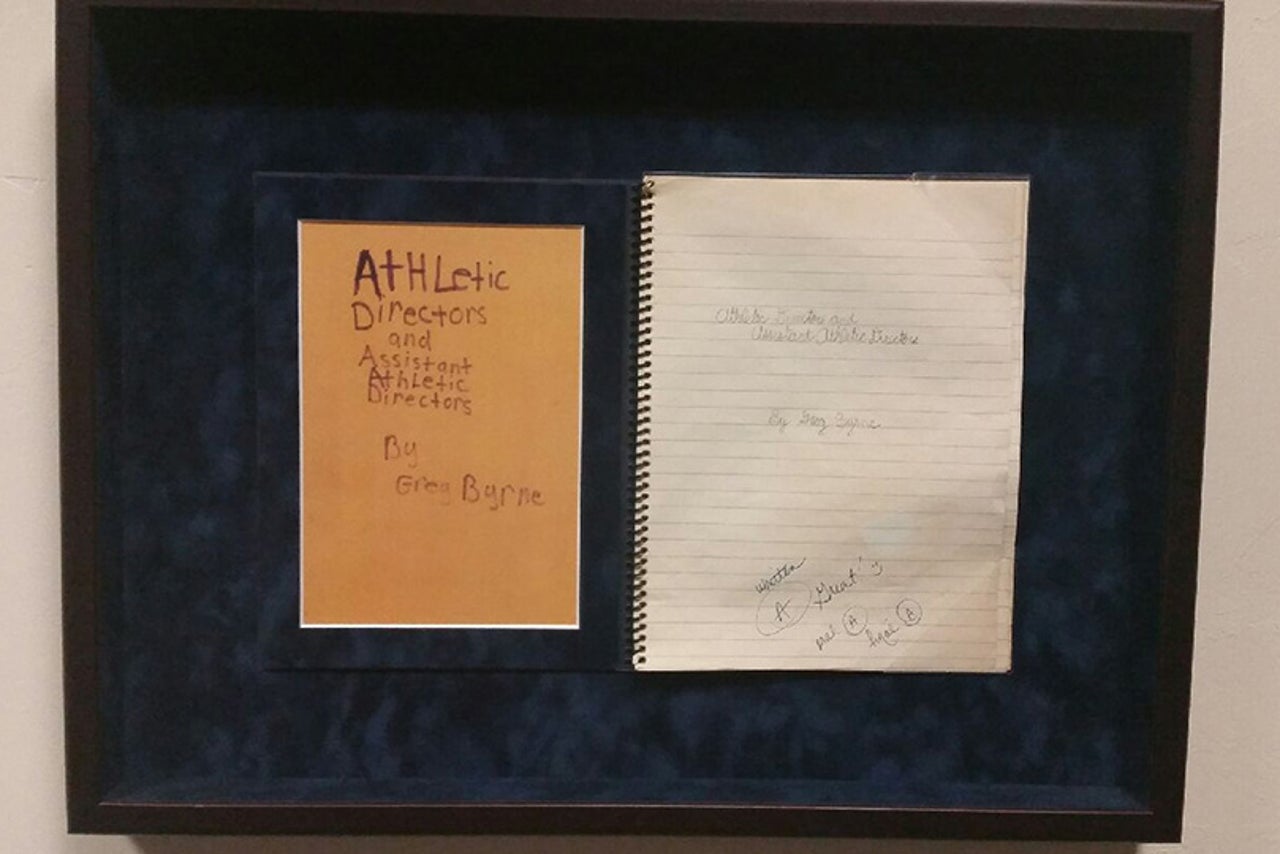 AtHLetic
Directors
and
Assistant
Athletic
Directors
By
Greg Byrne
Athletic Directors and
Assistant Athletic Directors
By Greg Byrne
written
A Great! :)
oral A final A